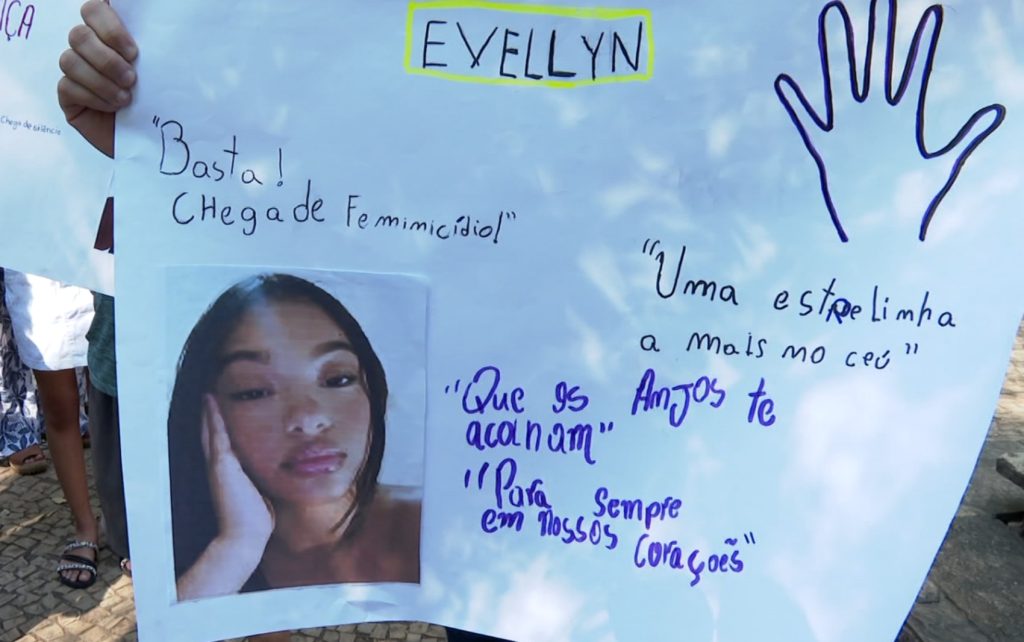 IÇA
Chega de silêncio
EVELLYN
"Basta!
CHega de Femimicídio!"
"Uma estrelimha
a mais mo ceú"
"Que os Anjos te
acolham"
"Para sempre
em nossos Coraçoẽs"